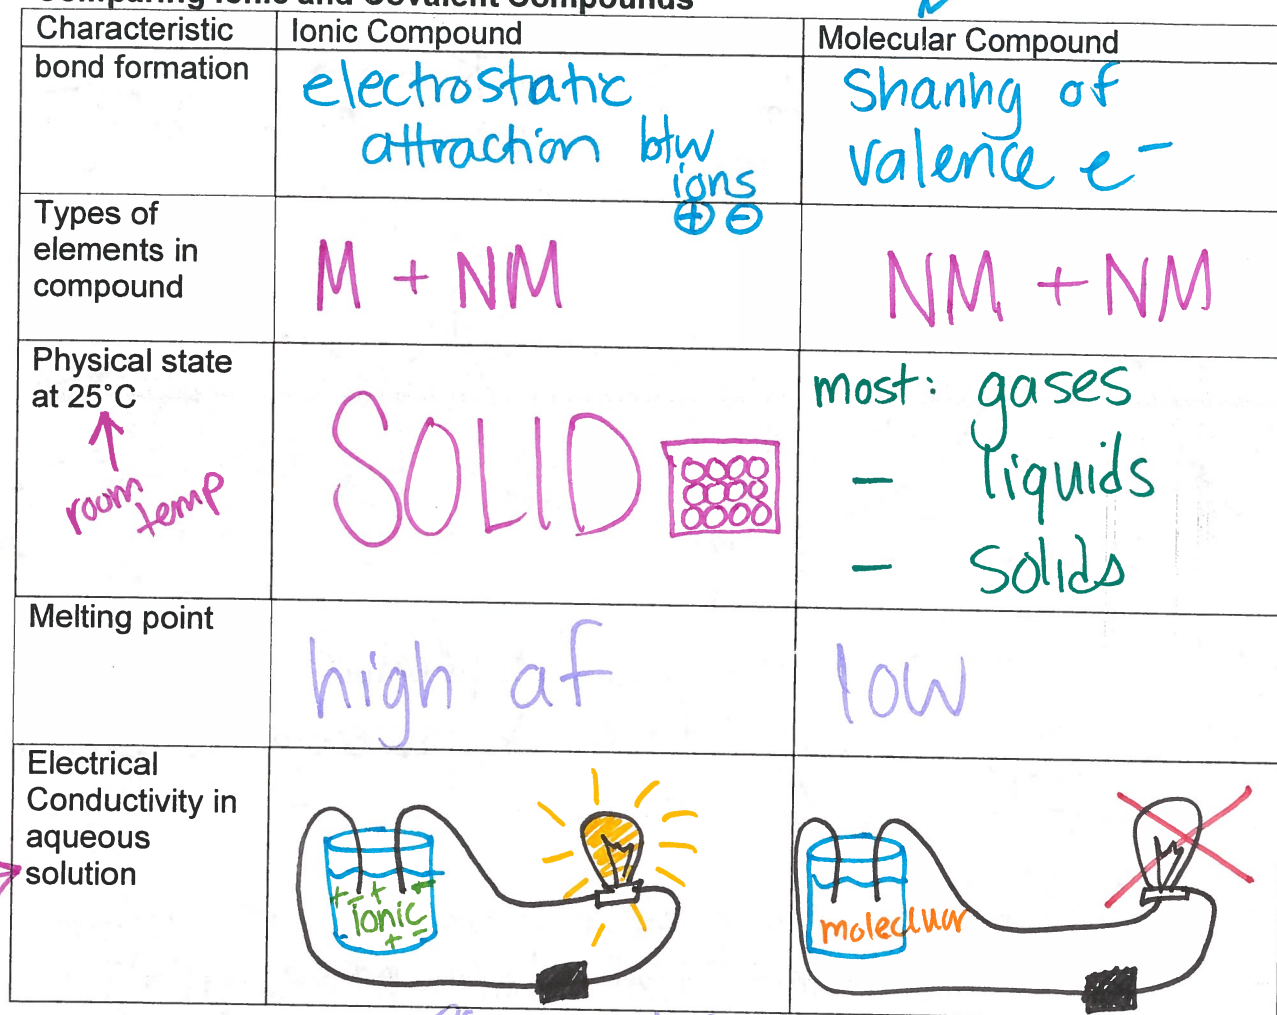 Comparing Ionic and Covalent Compounds
Characteristic
Ionic Compound
Molecular Compound
bond formation
electrostatic
attraction btw
ions
+ -
Sharing of
valence e⁻
Types of
elements in
compound
M + NM
NM + NM
Physical state
at 25°C
room temp
SOLID
most: gases
- liquids
- solids
Melting point
high af
low
Electrical
Conductivity in
aqueous
solution
+ - + -
ionic
+ -
molecluar